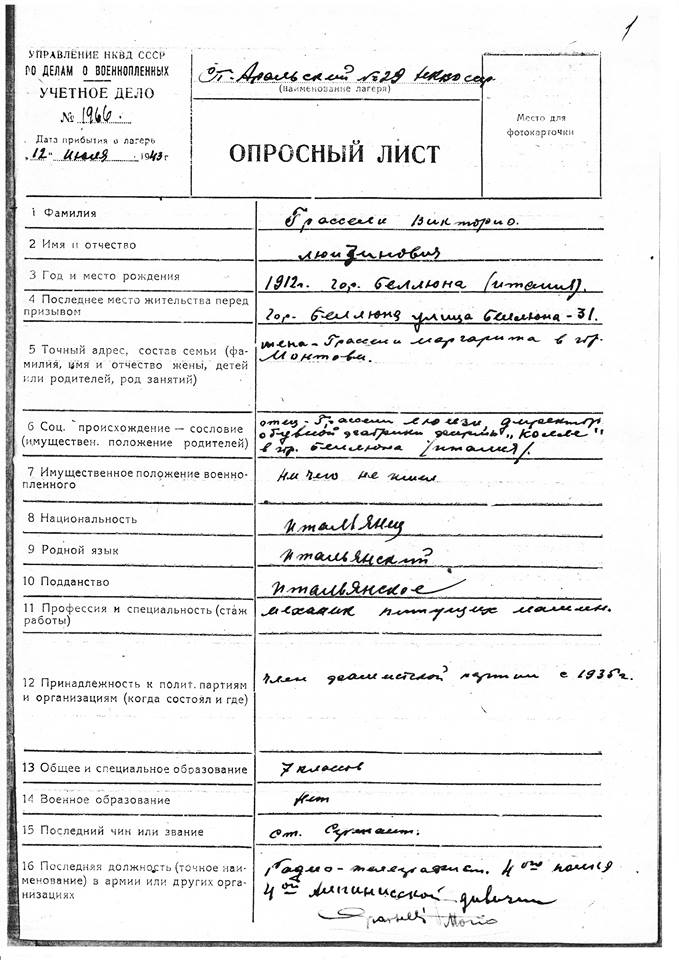 1
УПРАВЛЕНИЕ НКВД СССР
ПО ДЕЛАМ О ВОЕННОПЛЕННЫХ
УЧЕТНОЕ ДЕЛО
№ 1966.
Дата прибытия в лагерь
"12" июля 1943г
Аральский №29
(наименование лагеря)
ОПРОСНЫЙ ЛИСТ
Место для
фотокарточки
1 Фамилия
Грассели Викторио.
2 Имя и отчество
Люизинович
3 Год и место рождения
1912г. гор. Беллюна (италия).
4 Последнее место жительства перед
призывом
гор. Беллюна улица Беллюна-31.
5 Точный адрес, состав семьи (фа-
милия, имя и отчество жены, детей
или родителей, род занятий)
жена-Грассели маргарита в гор.
Монтова.
6 Соц. происхождение — сословие
(имуществен. положение родителей)
отец-Грассели люизи, директор
обувной фабрики фирмы "
в гор. Беллюна (италия).
7 Имущественное положение военно-
пленного
ничего не имел
8 Национальность
итальянец
9 Родной язык
итальянский
10 Подданство
итальянское
11 Профессия и специальность (стаж
работы)
механик пишущих машин.
12 Принадлежность к полит. партиям
и организациям (когда состоял и где)
член фашистской партии с 1935г.
13 Общее и специальное образование
7 классов
14 Военное образование
нет
15 Последний чин или звание
ст. Сержант.
16 Последняя должность (точное наи-
менование) в армии или других орга-
низациях
Радио-телеграфист. 4ого полка
4ой дивизии